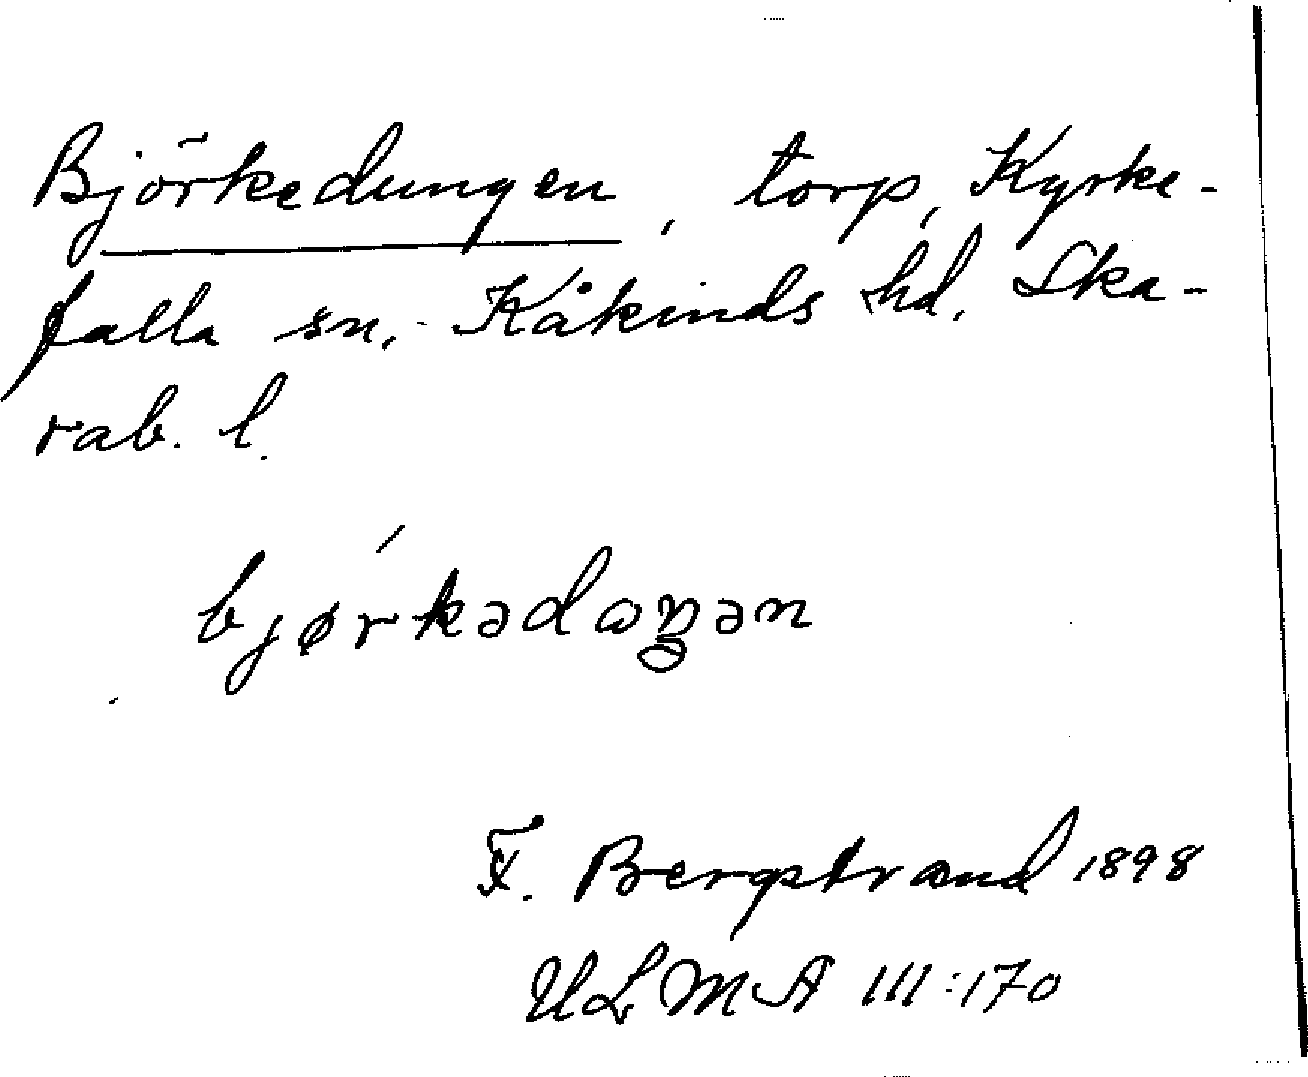 Björkedungen, torp, Kyrke-
falla sn. Kåkinds hd. Ska-
rab. l.
bjørkədɷŋən
F. Bergstrand 1898
ULMA 111:170